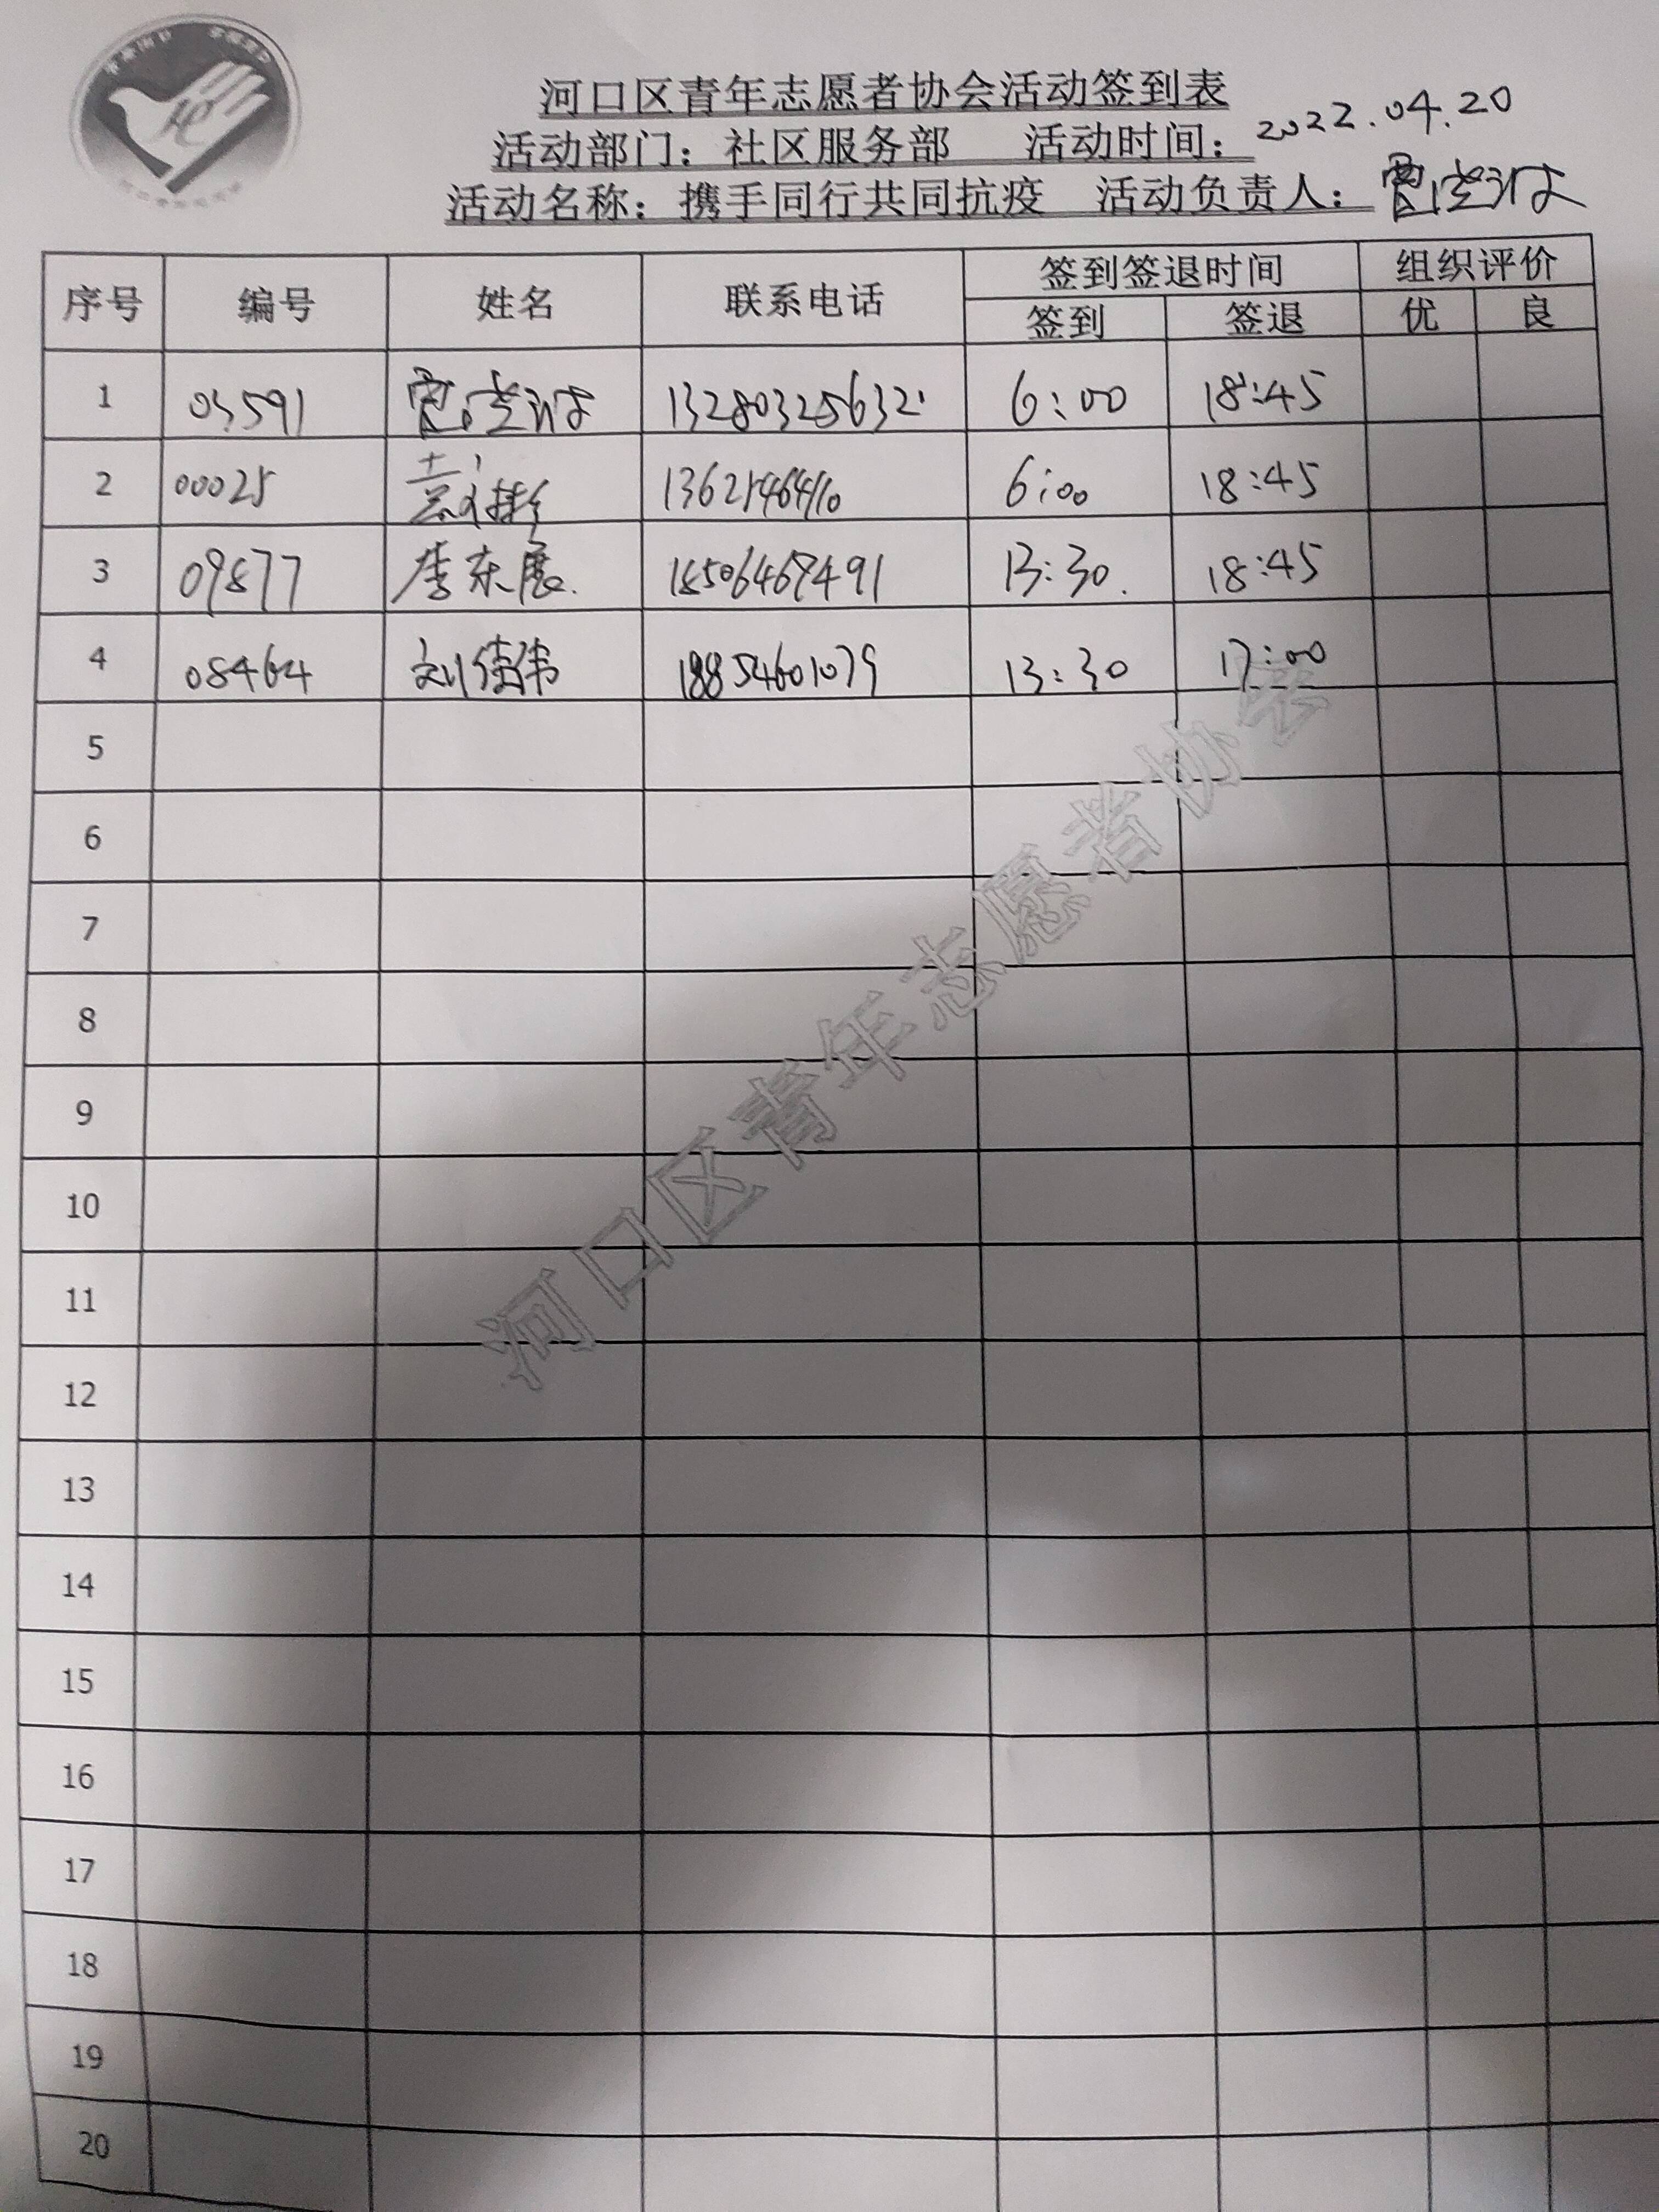 河口区青年志愿者协会活动签到表
活动部门：社区服务部 活动时间：2022.04.20
活动名称：携手同行共同抗疫 活动负责人：
序号 编号 姓名 联系电话 签到签退时间 组织评价
签到 签退 优 良
1 03591 13280325632 6:00 18:45
2 00025 6:00 18:45
3 09877 李东展 13:30. 18:45
4 08464 刘佳伟 18854601079 13:30 17:00
5
6
7
8
9
10
11
12
13
14
15
16
17
18
19
20
河口区青年志愿者协会